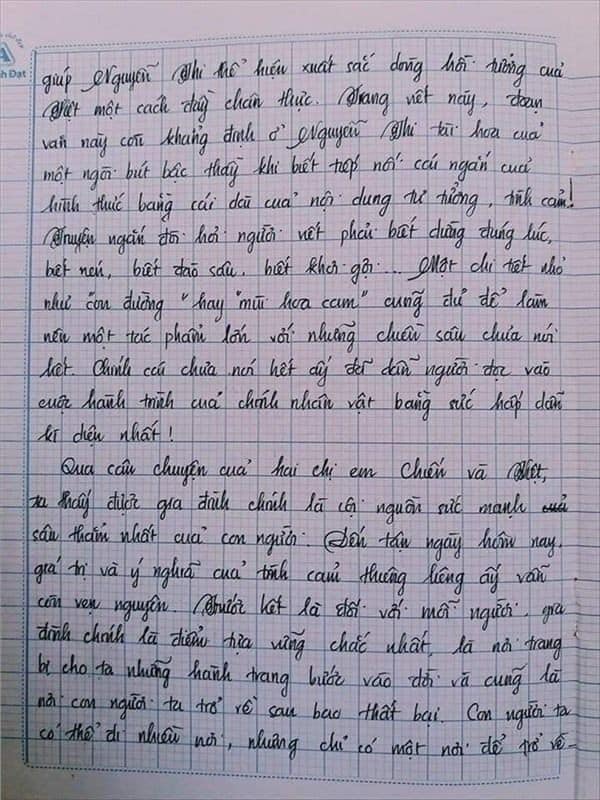 h Đạt
giúp Nguyễn Thi thể hiện xuất sắc dòng hồi tưởng của
Việt một cách đầy chân thực. Trang viết này, đoạn
văn này còn khẳng định ở Nguyễn Thi tài hoa của
một ngòi bút bậc thầy khi biết tiếp nối cái ngắn của
hình thức bằng cái dài của nội dung tư tưởng, tình cảm!
Truyện ngắn đòi hỏi người viết phải biết dừng đúng lúc,
biết nén, biết đào sâu, biết khơi gợi... Một chi tiết nhỏ
như "con đường" hay "mùi hoa cam" cũng đủ để làm
nên một tác phẩm lớn với những chiều sâu chưa nói
hết. Chính cái chưa nói hết ấy để dẫn người đọc vào
cuộc hành trình của chính nhân vật bằng sức hấp dẫn
kì diệu nhất!
Qua câu chuyện của hai chị em Chiến và Việt,
ta thấy được gia đình chính là cội nguồn sức mạnh
sâu thẳm nhất của con người. Đến tận ngày hôm nay,
giá trị và ý nghĩa của tình cảm thiêng liêng ấy vẫn
còn vẹn nguyên. Trước hết là đối với mỗi người, gia
đình chính là điểm tựa vững chắc nhất, là nơi trang
bị cho ta những hành trang bước vào đời và cũng là
nơi con người ta trở về sau bao thất bại. Con người ta
có thể đi nhiều nơi, nhưng chỉ có một nơi để trở về-